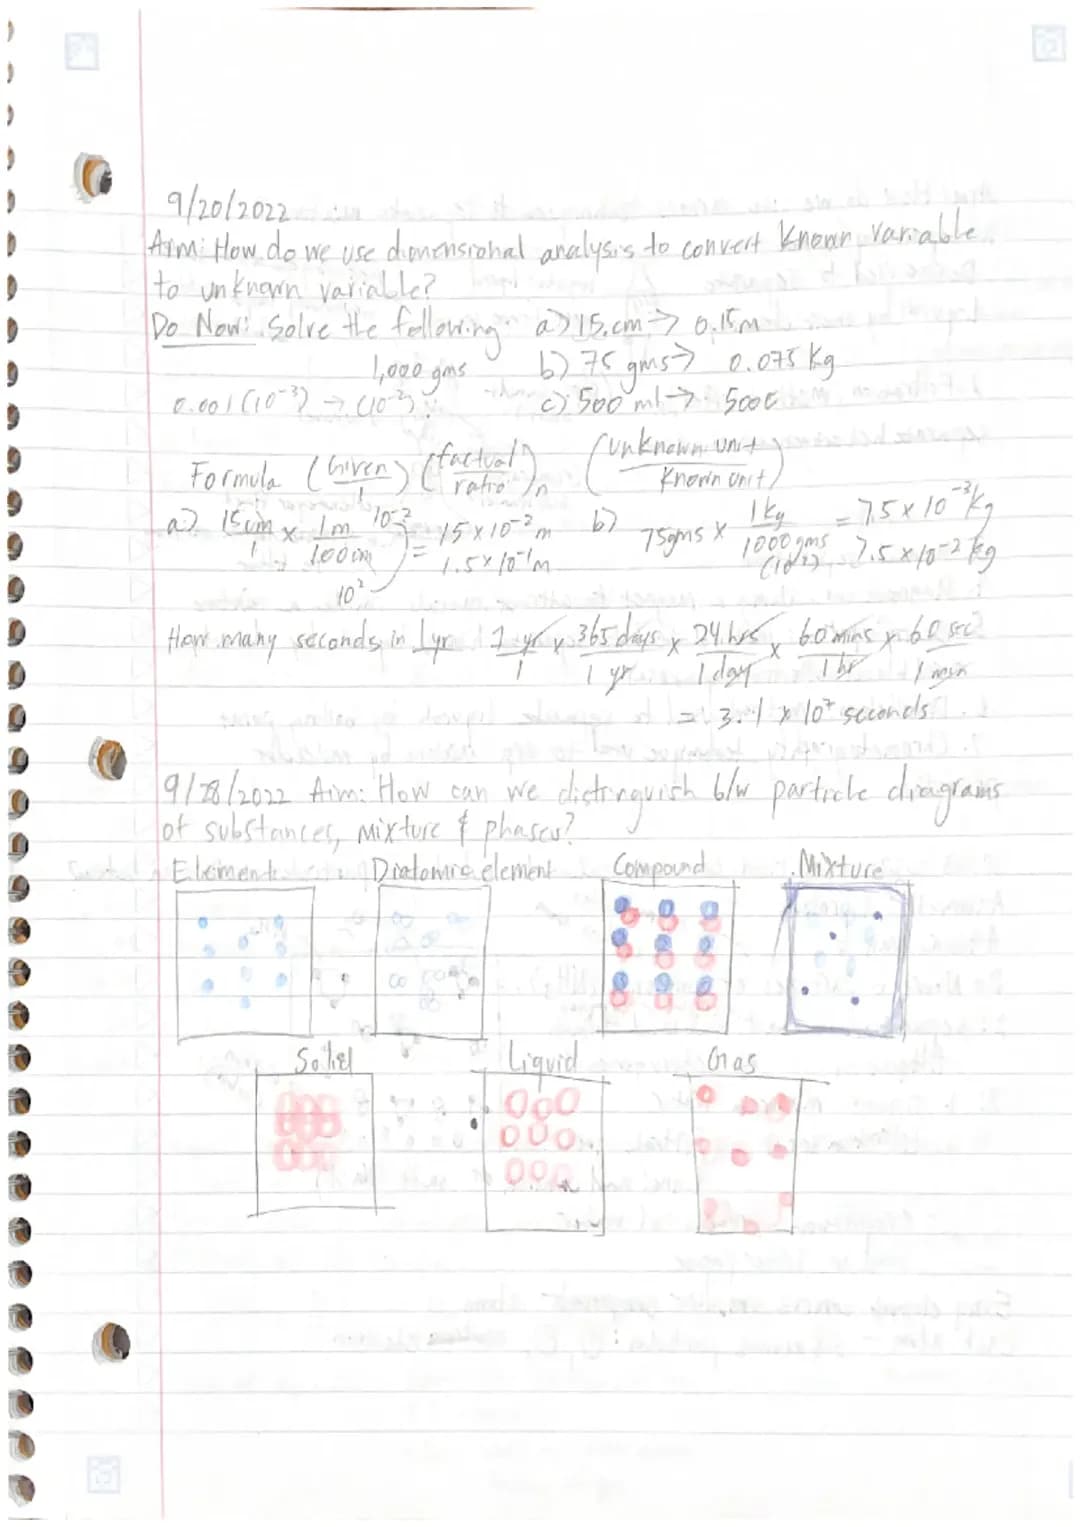 9/20/2022
Aim: How do we use dimensional analysis to convert known variable
to unknown variable?
Do Now: Solve the following a) 15.cm → 0.15m
1,000 gms b) 75 gms → 0.075 kg
0.001 (10⁻³) → (10⁻³) c) 500 ml →
Formula (Given/1) (factual/ratio)n (unknown unit/Known unit)
a) 15cm/1 × 1m/100cm 10² 10⁻² = 15 x 10⁻² m b) 75gms x 1kg/1000gms = 7.5 x 10⁻³kg
1.5 x 10⁻¹m 7.5 x 10⁻² kg
How many seconds in 1yr 1 yr/1 x 365 days/1 yr x 24 hrs/1 day x 60 mins/1 hr x 60 sec/1 min
= 3.1 x 10⁷ seconds
9/28/2022 Aim: How can we distinguish b/w particle diagrams
of substances, mixture & phases?
Element Diatomic element Compound Mixture
Solid Liquid Gas